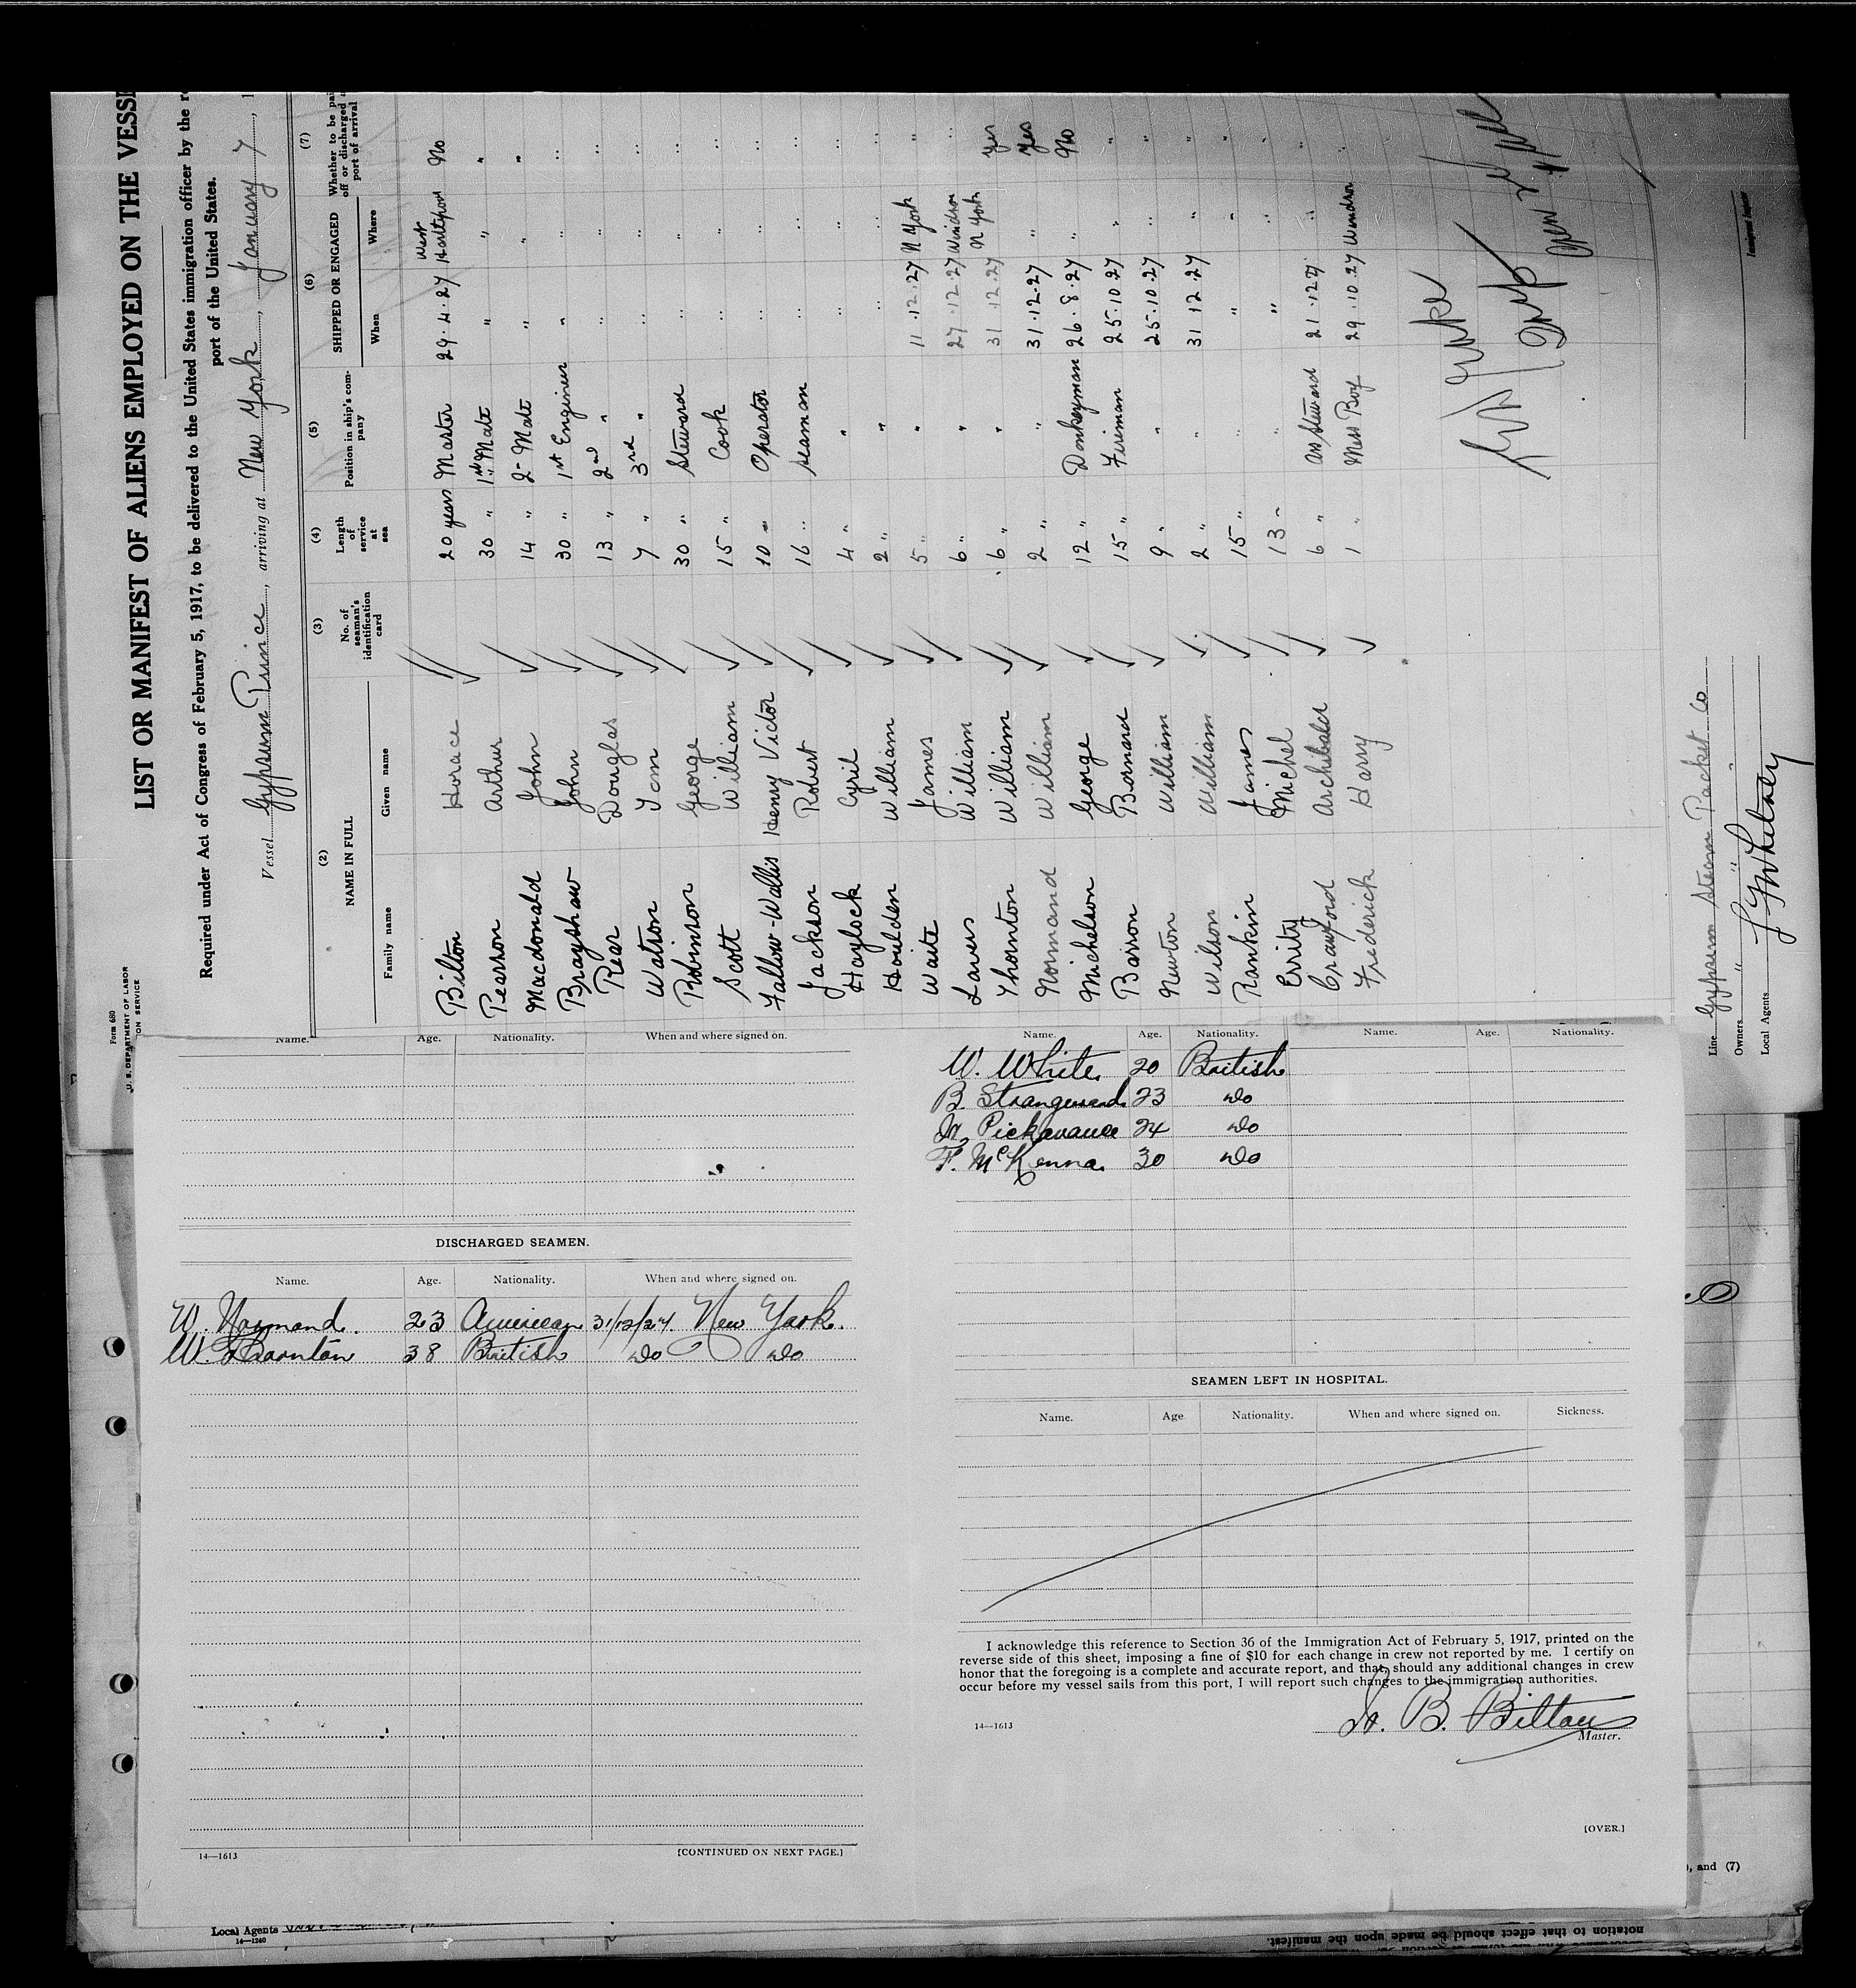 Form 680
U. S. DEPARTMENT OF LABOR
ION SERVICE
LIST OR MANIFEST OF ALIENS EMPLOYED ON THE VESSE
Required under Act of Congress of February 5, 1917, to be delivered to the United States immigration officer by the r
port of the United States.
Vessel Gypsum Prince, arriving at New York, January 7, 1
(2) (3) (4) (5) (6) (7)
NAME IN FULL No. of seaman's identification card Length of service at sea Position in ship's company SHIPPED OR ENGAGED Whether to be pai off or discharged a port of arrival
Family name Given name When Where
Bilton Horace 20 years Master 29.4.27 West Hartlepool No
Pearson Arthur 30 " 1st Mate " " "
Macdonald John 14 " 2- Mate " " "
Brayshaw John 30 " 1st Engineer " " "
Rear Douglas 13 " 2nd " " " "
Watson Tom 7 " 3rd " " " "
Robinson George 30 " Steward " " "
Scott William 15 " Cook " " "
Fallow-Wallis Henry Victor 10 " Operator " " "
Jackson Robert 16 " seaman " " "
Haylock Cyril 4 " " " " "
Houlden William 2 " " " " "
Waite James 5 " " 11.12.27 N York "
Laws William 6 " " 27.12.27 Windsor "
Thornton William 6 " " 31.12.27 N York Yes
Normand William 2 " " 31.12.27 " Yes
Michelson George 12 " Donkeyman 26.8.27 " No
Barron Bernard 15 " Fireman 25.10.27 " "
Newton William 9 " " 25.10.27 " "
Wilson William 2 " " 31 12.27 " "
Rankin James 15 " " " " "
Errity Michel 13 - " " " "
Crawford Archibald 6 " Ass Steward 21.12.27 " "
Frederick Harry 1 " Mess Boy 29.10.27 Windsor "
Line Gypsum Steam Packet Co
Owners " " "
Local Agents J F Whitney
Immigrant Inspector
Name. Age. Nationality. When and where signed on.
Name. Age. Nationality. Name. Age. Nationality.
W. White 20 British
B. Strangward 23 do
Pickavance 24 do
F. McKenna 30 do
DISCHARGED SEAMEN.
Name. Age. Nationality. When and where signed on.
W. Normand. 23 American 31/12/27 New York.
W. Thornton 38 British do do
14—1613 [CONTINUED ON NEXT PAGE.]
SEAMEN LEFT IN HOSPITAL.
Name. Age Nationality. When and where signed on. Sickness.
I acknowledge this reference to Section 36 of the Immigration Act of February 5, 1917, printed on the
reverse side of this sheet, imposing a fine of $10 for each change in crew not reported by me. I certify on
honor that the foregoing is a complete and accurate report, and that, should any additional changes in crew
occur before my vessel sails from this port, I will report such changes to the immigration authorities.
H. B. Bilton
14—1613 Master.
[OVER.]
), and (7)
Local Agents
14—1240
notation to that effect should be made upon the manifest.